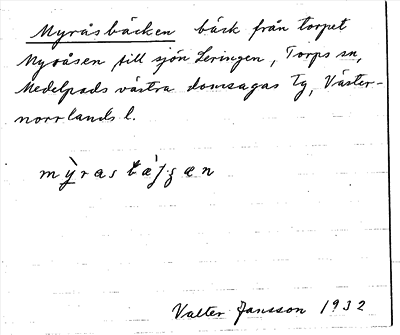 Myråsbäcken bäck från torpet
Myråsen till sjön Leringen, Torps sn,
Medelpads västra domsagas Tg, Väster-
norrlands l.
Valter Jansson 1932